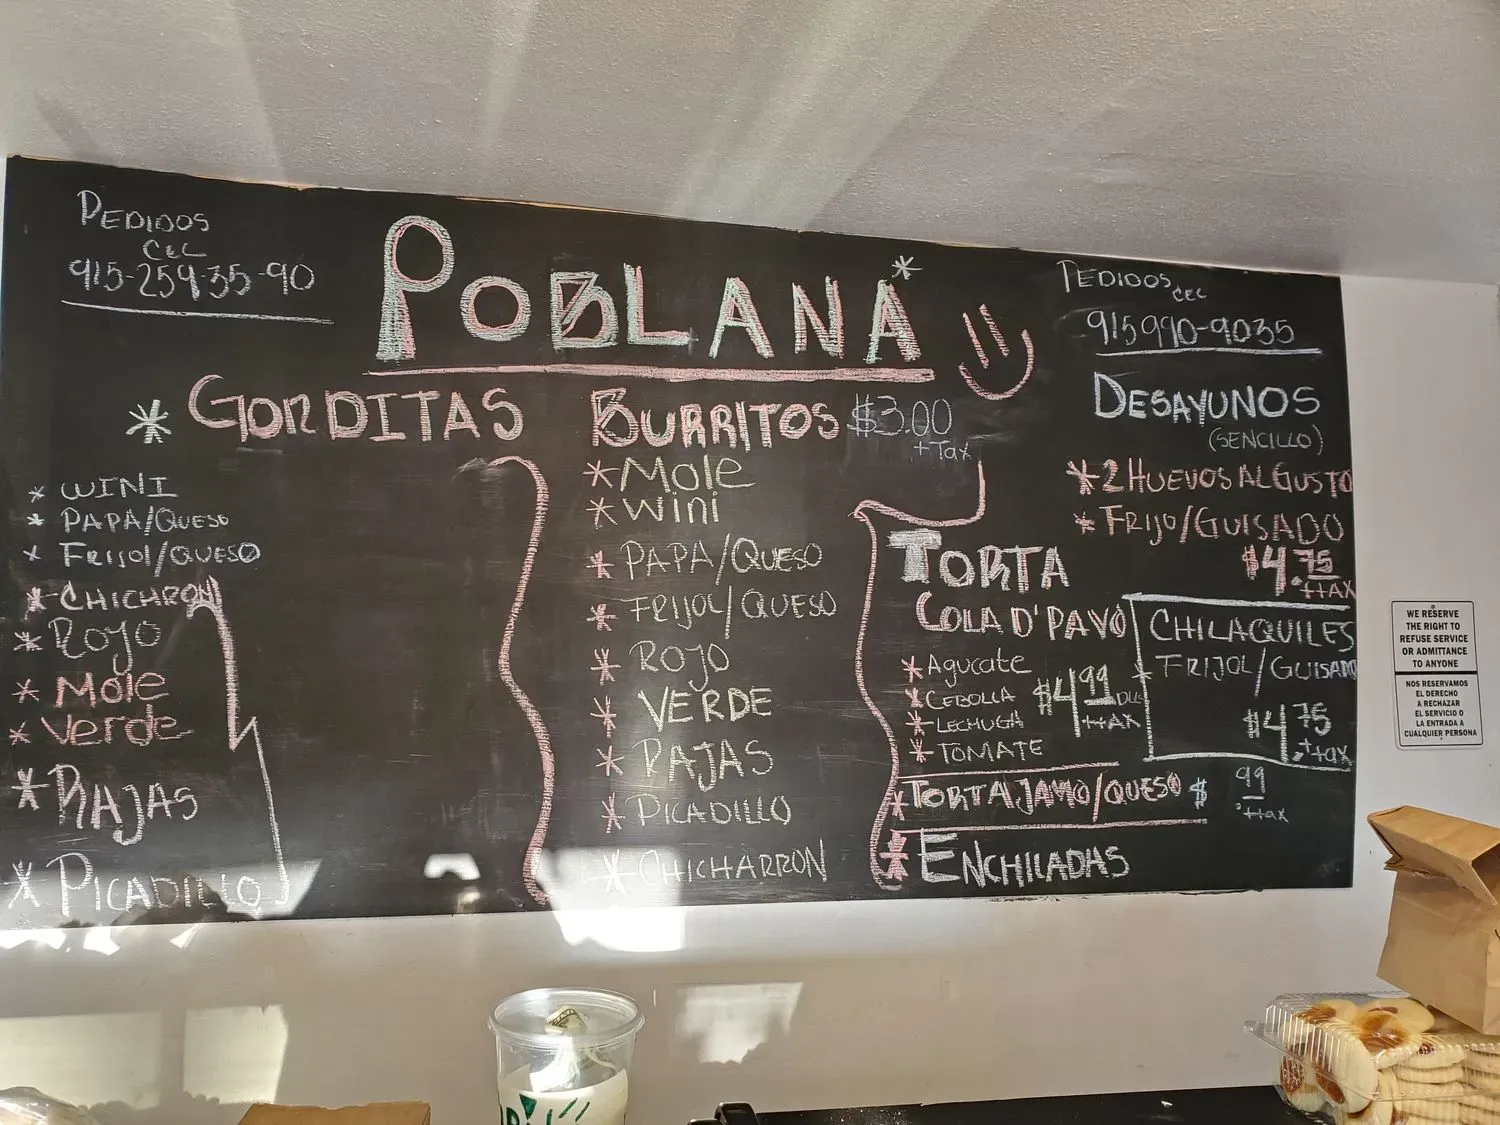 PEDIDOS
CEL
915-259-35-90
POBLANA*
PEDIDOS CEL
915990-9035
* GORDITAS
* WINI
* PAPA/QUESO
* FRIJOL/QUESO
* CHICHRON
* ROJO
* MOLE
* VERDE
* RAJAS
* PICADILLO
BURRITOS $3.00
+ Tax
* MOLE
* Wini
* PAPA/QUESO
* FRIJOL/QUESO
* ROJO
* VERDE
* RAJAS
* PICADILLO
* CHICHARRON
TORTA
COLA D'PAVO
* Agucate
* CEBOLLA
* LECHUGA
* TOMATE
$4.99
+tAX
* TORTA JAMO/QUESO $ .99
+tax
* ENCHILADAS
DESAYUNOS
(SENCILLO)
* 2 HUEVOS AL GUSTO
* FRIJO/GUISADO
$4.75
+tAX
CHILAQUILES
* FRIJOL/GUISADO
$4.75
+tax
WE RESERVE
THE RIGHT TO
REFUSE SERVICE
OR ADMITTANCE
TO ANYONE
NOS RESERVAMOS
EL DERECHO
A RECHAZAR
EL SERVICIO O
LA ENTRADA A
CUALQUIER PERSONA